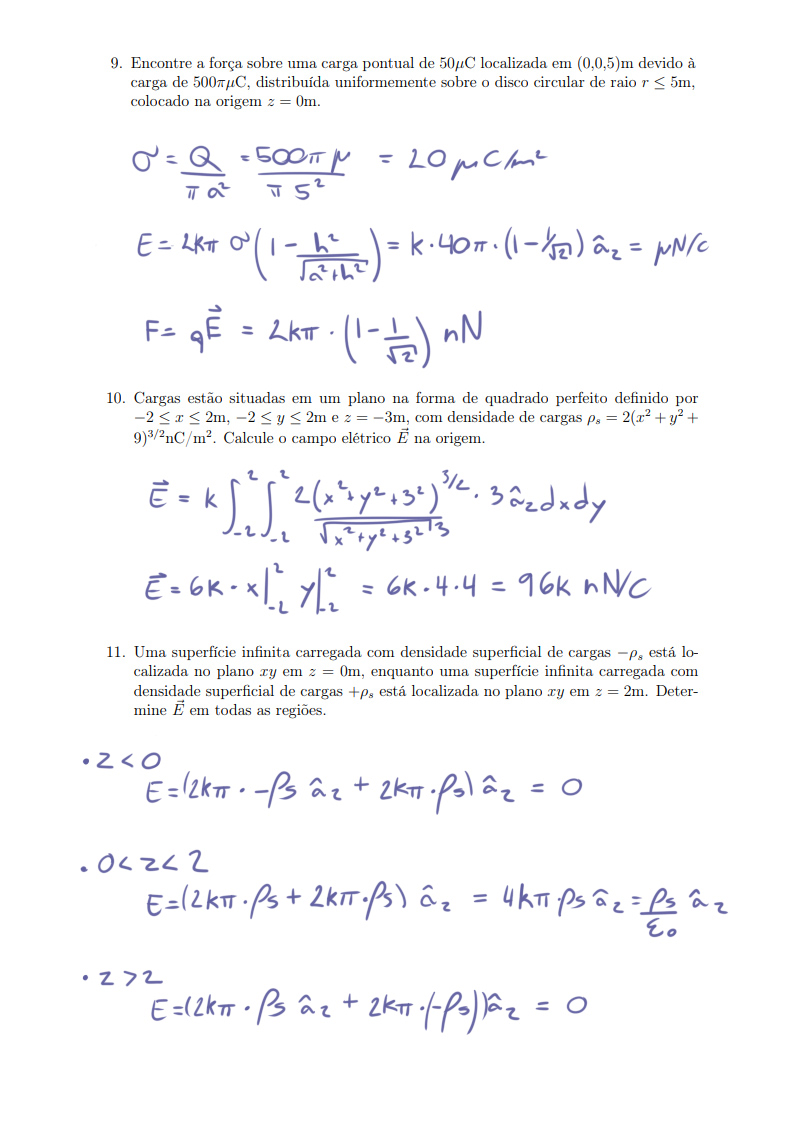 9. Encontre a força sobre uma carga pontual de 50μC localizada em (0,0,5)m devido à
carga de 500πμC, distribuída uniformemente sobre o disco circular de raio r ≤ 5m,
colocado na origem z = 0m.
σ = Q/(π a²) = 500π μ/(π 5²) = 20 μC/m²
E = 2kπ σ(1 - h²/√(a²+h²)) = k·40π·(1 - 1/√2) â_z = μN/C
F = qE⃗ = 2kπ · (1 - 1/√2) nN
10. Cargas estão situadas em um plano na forma de quadrado perfeito definido por
−2 ≤ x ≤ 2m, −2 ≤ y ≤ 2m e z = −3m, com densidade de cargas ρ_s = 2(x² + y² +
9)^{3/2}nC/m². Calcule o campo elétrico E⃗ na origem.
E⃗ = k ∫_{-2}^{2} ∫_{-2}^{2} 2(x²+y²+3²)^{3/2}/√(x²+y²+3²)^3 · 3 â_z dx dy
E⃗ = 6k · x|_{-2}^{2} y|_{-2}^{2} = 6k·4·4 = 96k nN/C
11. Uma superfície infinita carregada com densidade superficial de cargas −ρ_s está lo-
calizada no plano xy em z = 0m, enquanto uma superfície infinita carregada com
densidade superficial de cargas +ρ_s está localizada no plano xy em z = 2m. Deter-
mine E⃗ em todas as regiões.
• z < 0
E = (2kπ · -ρs â_z + 2kπ·ρs) â_z = 0
• 0 < z < 2
E = (2kπ·ρs + 2kπ·ρs) â_z = 4kπ·ρs â_z = ρs/ε₀ â_z
• z > 2
E = (2kπ · ρs â_z + 2kπ·(-ρs)) â_z = 0